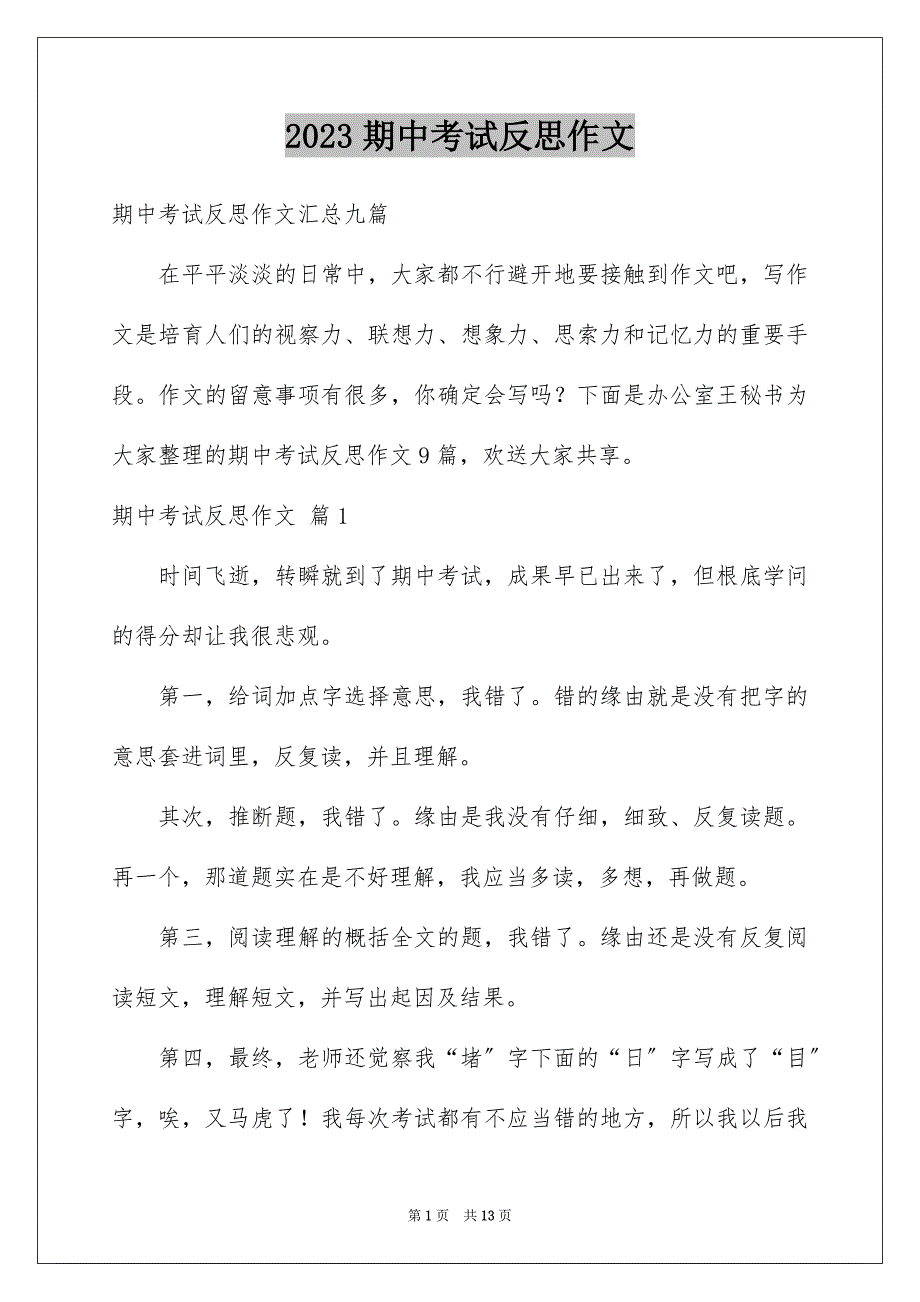 2023期中考试反思作文
期中考试反思作文汇总九篇
在平平淡淡的日常中，大家都不行避开地要接触到作文吧，写作
文是培育人们的视察力、联想力、想象力、思索力和记忆力的重要手
段。作文的留意事项有很多，你确定会写吗？下面是办公室王秘书为
大家整理的期中考试反思作文9篇，欢送大家共享。
期中考试反思作文 篇1
时间飞逝，转瞬就到了期中考试，成果早已出来了，但根底学问
的得分却让我很悲观。
第一，给词加点字选择意思，我错了。错的缘由就是没有把字的
意思套进词里，反复读，并且理解。
其次，推断题，我错了。缘由是我没有仔细，细致、反复读题。
再一个，那道题实在是不好理解，我应当多读，多想，再做题。
第三，阅读理解的概括全文的题，我错了。缘由还是没有反复阅
读短文，理解短文，并写出起因及结果。
第四，最终，老师还觉察我“堵〞字下面的“日〞字写成了“目〞
字，唉，又马虎了！我每次考试都有不应当错的地方，所以我以后我
第1页 共13页